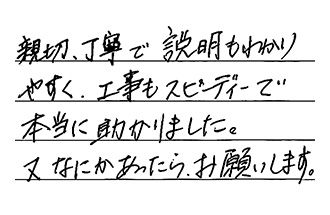 親切、丁寧で説明もわかり
やすく、工事もスピーディーで
本当に助かりました。
又なにかあったら、お願いします。